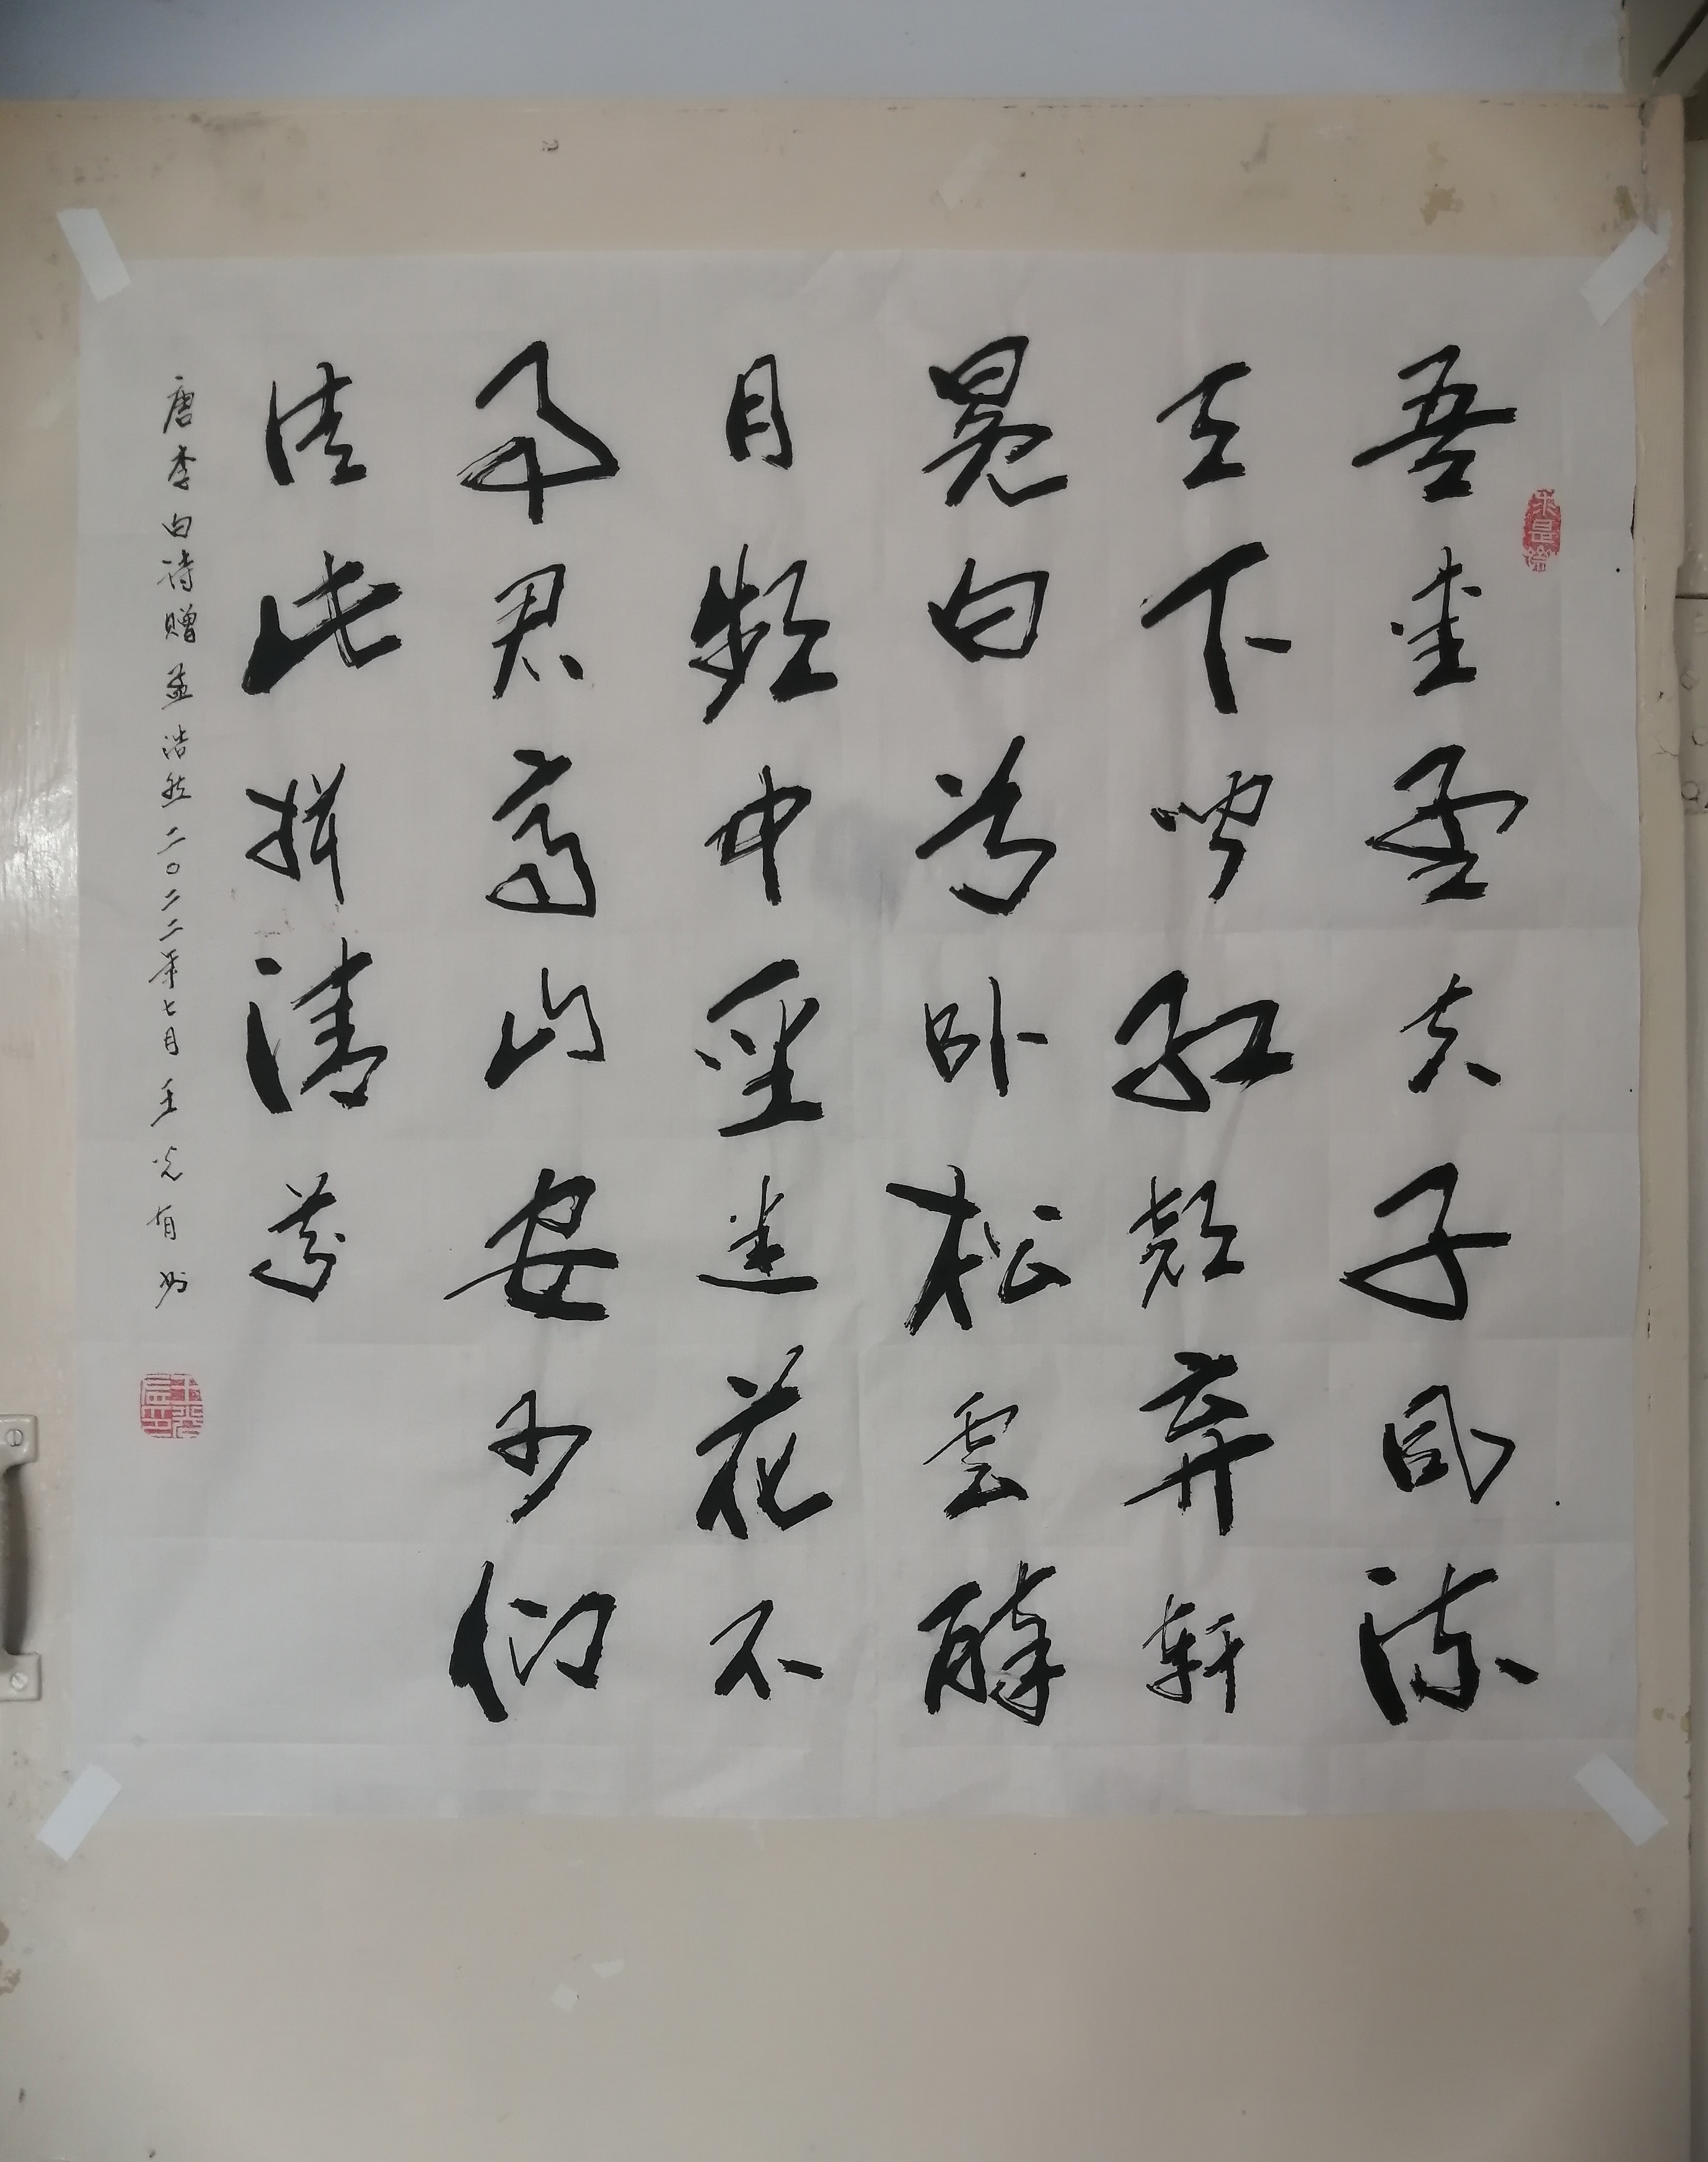 吾爱孟夫子风流
天下闻红颜弃轩
冕白首卧松雲醉
月频中圣迷花不
事君高山安可仰
徒此揖清芬
唐李白诗赠孟浩然二〇二二年七月王光